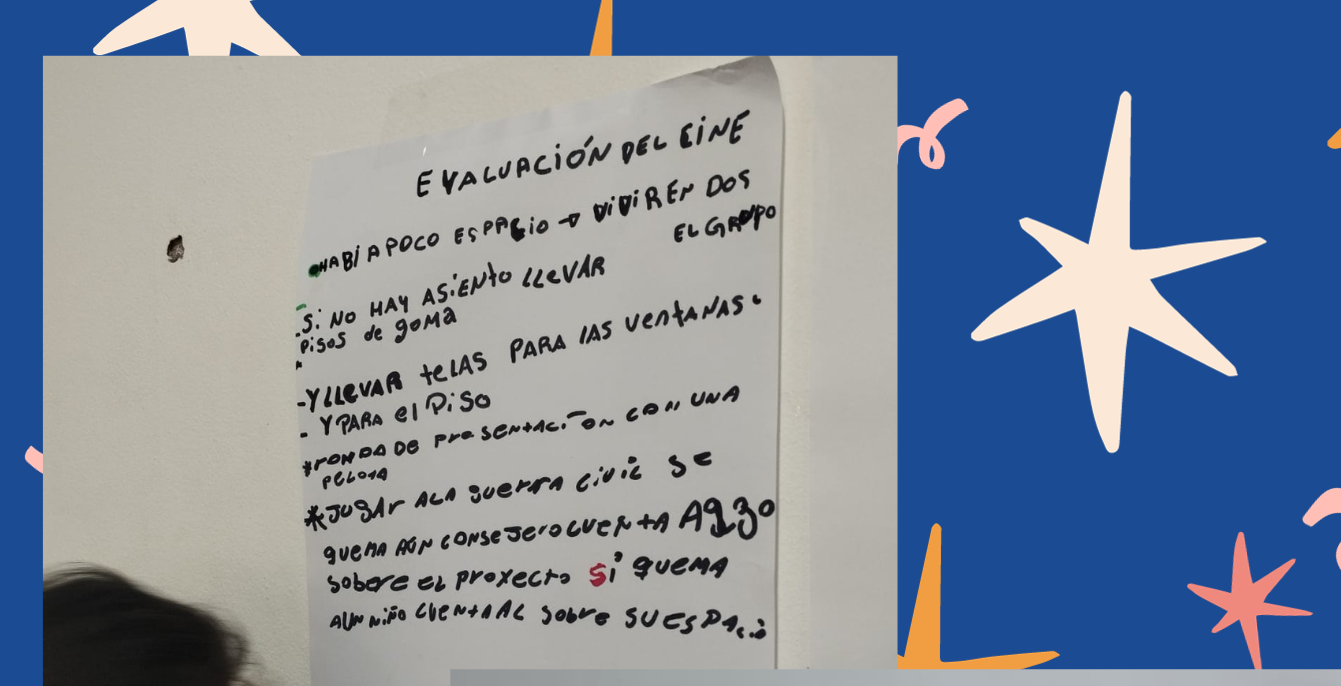 EVALUACIÓN DEL CINE
HABÍA POCO ESPACIO → DIVIDIR EN DOS
EL GRUPO
-Si NO HAY ASIENTO LLEVAR
pisos de goma
-Y LLEVAR telAS PARA lAS ventANAS.
- Y PARA el PiSo
*RONDA DE PreSENtACiÓN CON UNA
PELOtA
*JUGAr A LA guerra civil Se
quema A UN CONSEJERO CUENtA Algo
sobere el proyecto Si quema
A UN Niño CUENtA AL Sobre SU ESPACio